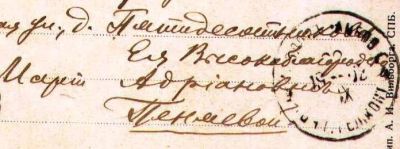 ая ул., д. Пятидесятникова
Ея Высокоблагородію
Март Адріановнѣ
Пеняевой
ип. А. И. Вильборга, СПБ.